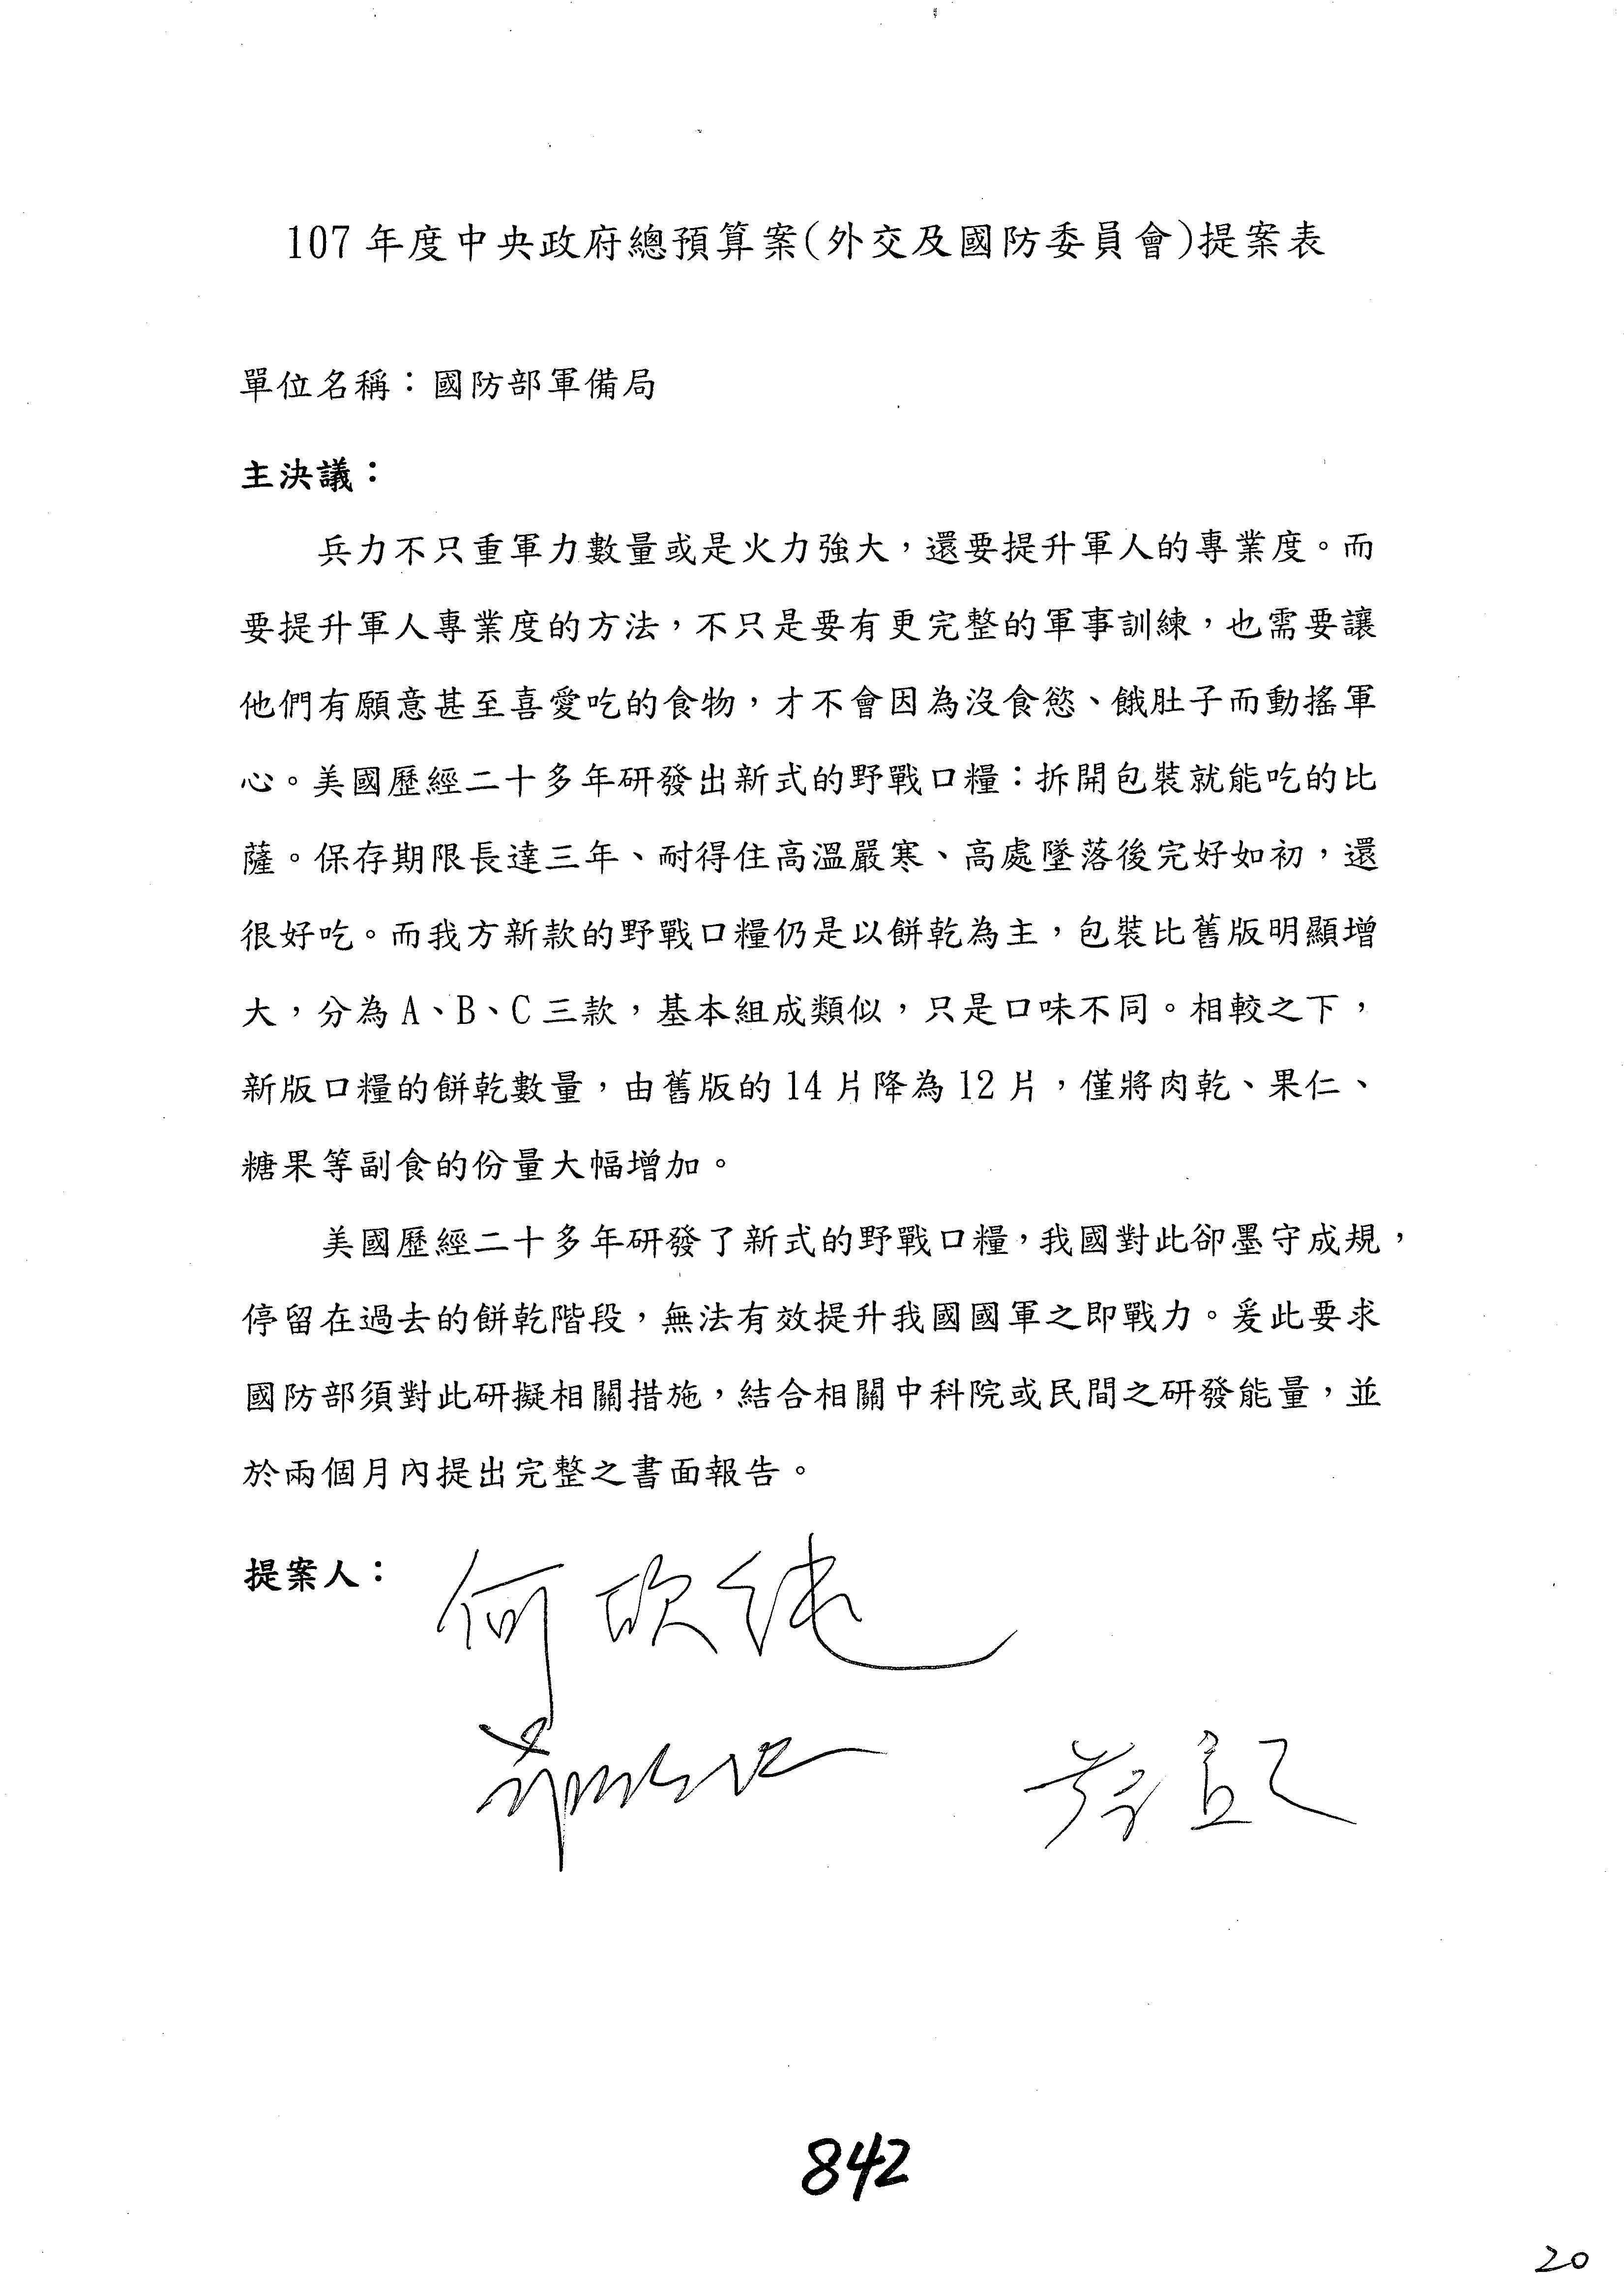 107年度中央政府總預算案(外交及國防委員會)提案表
單位名稱：國防部軍備局
主決議：
兵力不只重軍力數量或是火力強大，還要提升軍人的專業度。而
要提升軍人專業度的方法，不只是要有更完整的軍事訓練，也需要讓
他們有願意甚至喜愛吃的食物，才不會因為沒食慾、餓肚子而動搖軍
心。美國歷經二十多年研發出新式的野戰口糧：拆開包裝就能吃的比
薩。保存期限長達三年、耐得住高溫嚴寒、高處墜落後完好如初，還
很好吃。而我方新款的野戰口糧仍是以餅乾為主，包裝比舊版明顯增
大，分為A、B、C三款，基本組成類似，只是口味不同。相較之下，
新版口糧的餅乾數量，由舊版的14片降為12片，僅將肉乾、果仁、
糖果等副食的份量大幅增加。
美國歷經二十多年研發了新式的野戰口糧，我國對此卻墨守成規，
停留在過去的餅乾階段，無法有效提升我國國軍之即戰力。爰此要求
國防部須對此研擬相關措施，結合相關中科院或民間之研發能量，並
於兩個月內提出完整之書面報告。
提案人：
何欣純
842
20